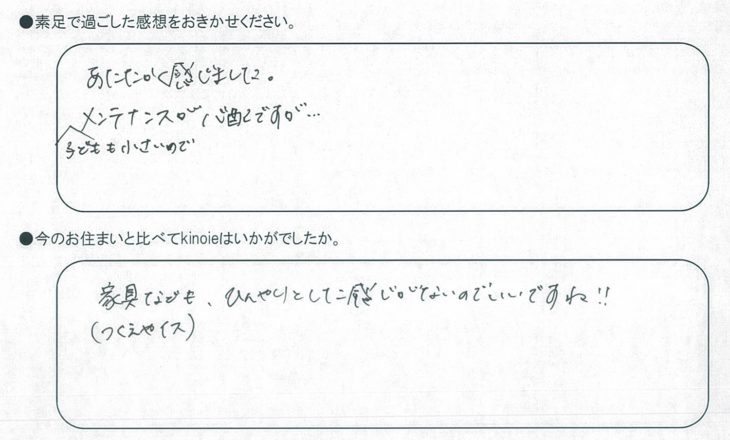 ●素足で過ごした感想をおきかせください。
あたたかく感じました。
メンテナンスが心配ですが…
子どもも小さいので
●今のお住まいと比べてkinoieはいかがでしたか。
家具なども、ひんやりとした感じがないのでいいですね!!
(つくえやイス)